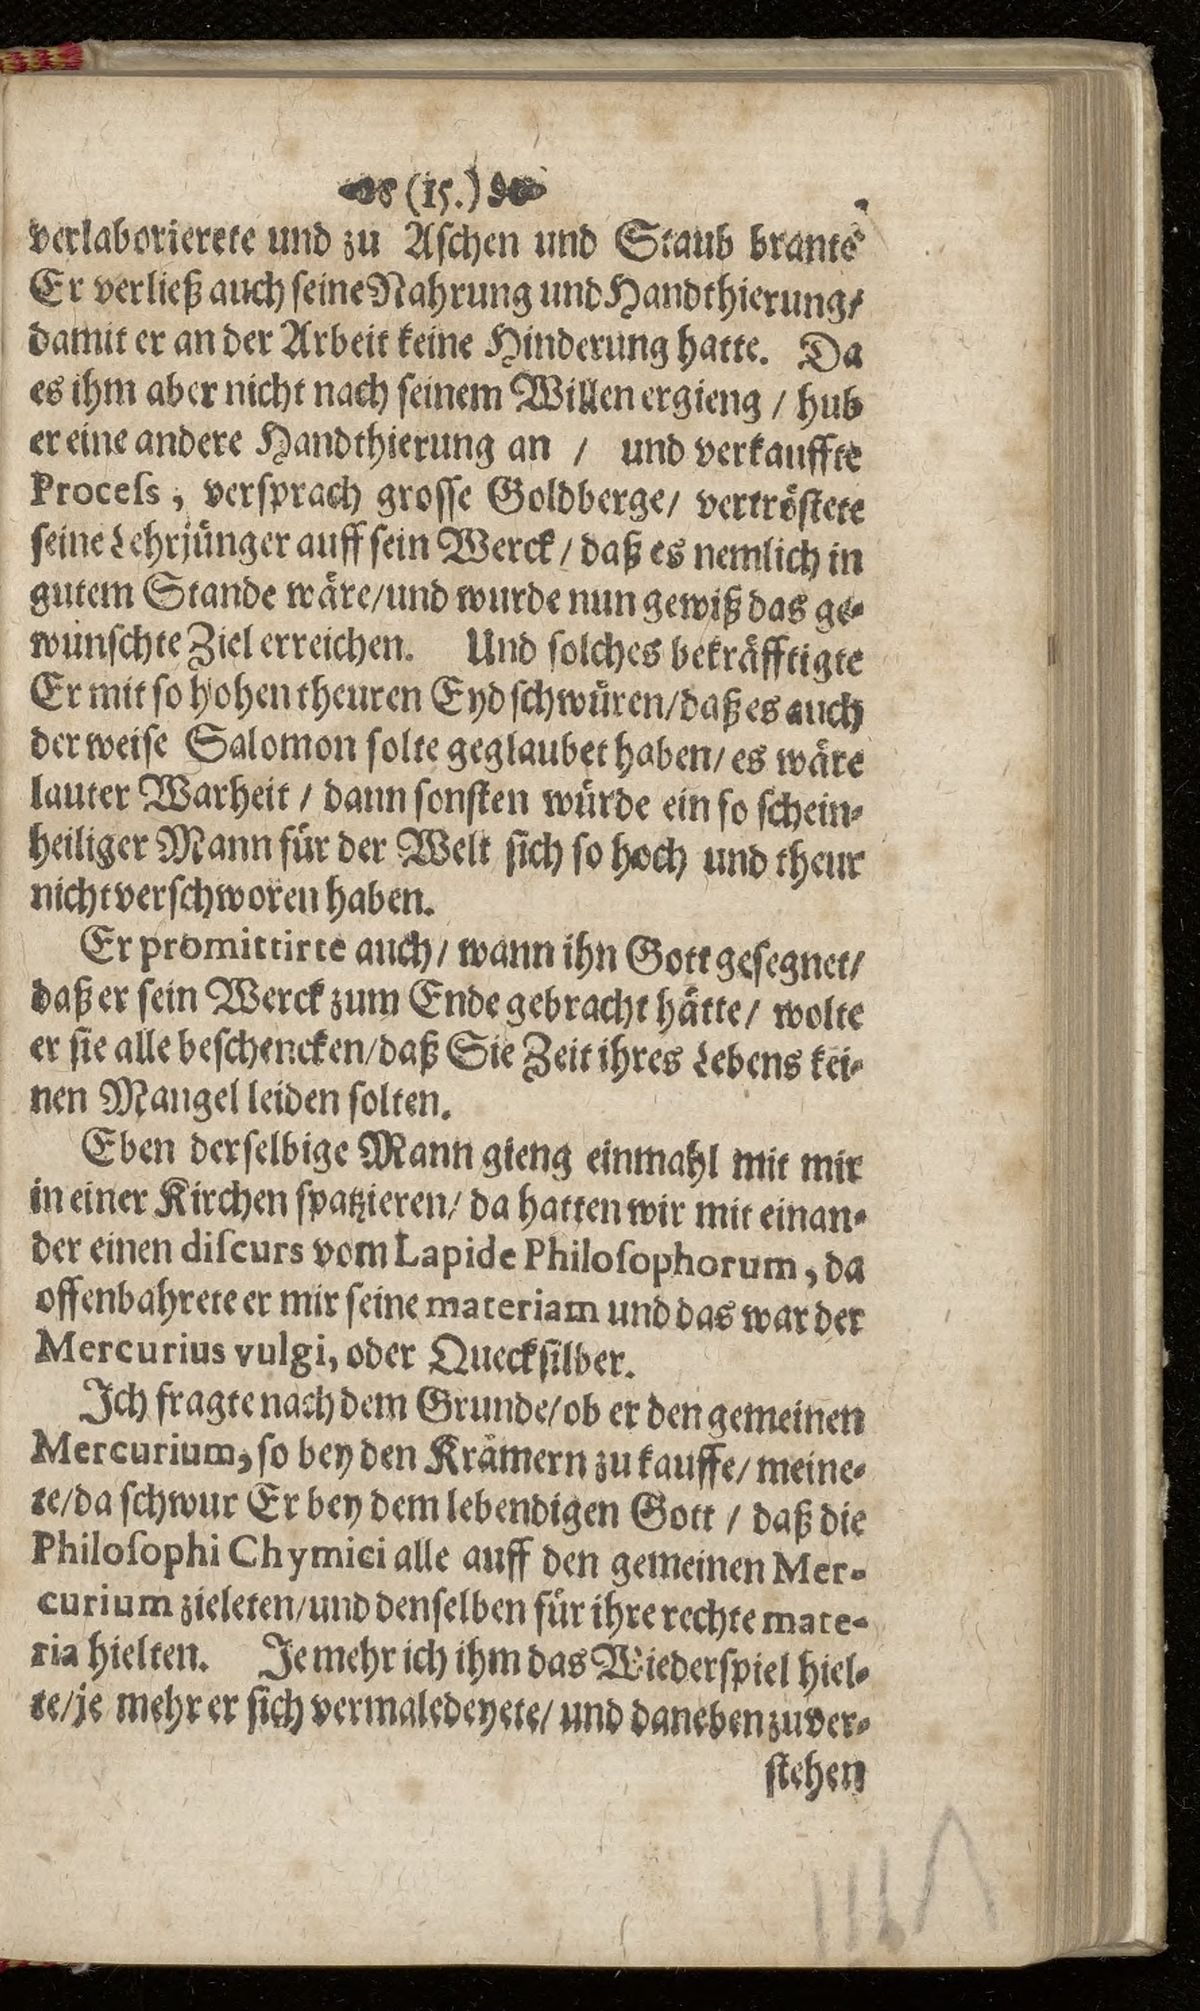 (15.)
verlaborierete und zu Aſchen und Staub brante
Er verließ auch ſeine Nahrung und Handthierung/
damit er an der Arbeit keine Hinderung hatte. Da
es ihm aber nicht nach ſeinem Willen ergieng / hub
er eine andere Handthierung an / und verkauffte
Proceſs, verſprach groſſe Goldberge/ vertröſtete
ſeine Lehrjünger auff ſein Werck / daß es nemlich in
gutem Stande wäre/und wurde nun gewiß das ge-
wünſchte Ziel erreichen. Und ſolches bekräfftigte
Er mit ſo hohen theuren Eydſchwüren/daß es auch
der weiſe Salomon ſolte geglaubet haben/ es wäre
lauter Warheit / dann ſonſten würde ein ſo ſchein-
heiliger Mann für der Welt ſich ſo hoch und theur
nicht verſchworen haben.
Er promittirte auch/ wann ihn Gott geſegnet/
daß er ſein Werck zum Ende gebracht hätte/ wolte
er ſie alle beſchencken/daß Sie Zeit ihres Lebens kei-
nen Mangel leiden ſolten.
Eben derſelbige Mann gieng einmahl mit mir
in einer Kirchen ſpatzieren/ da hatten wir mit einan-
der einen diſcurs vom Lapide Philoſophorum, da
offenbahrete er mir ſeine materiam und das war der
Mercurius vulgi, oder Queckſilber.
Ich fragte nach dem Grunde/ob er den gemeinen
Mercurium, ſo bey den Krämern zu kauffe/ meine-
te/da ſchwur Er bey dem lebendigen Gott / daß die
Philoſophi Chymici alle auff den gemeinen Mer-
curium zieleten/und denſelben für ihre rechte mate-
ria hielten. Je mehr ich ihm das Wiederſpiel hiel-
te/je mehr er ſich vermaledeyete/ und daneben zuver-
ſtehen